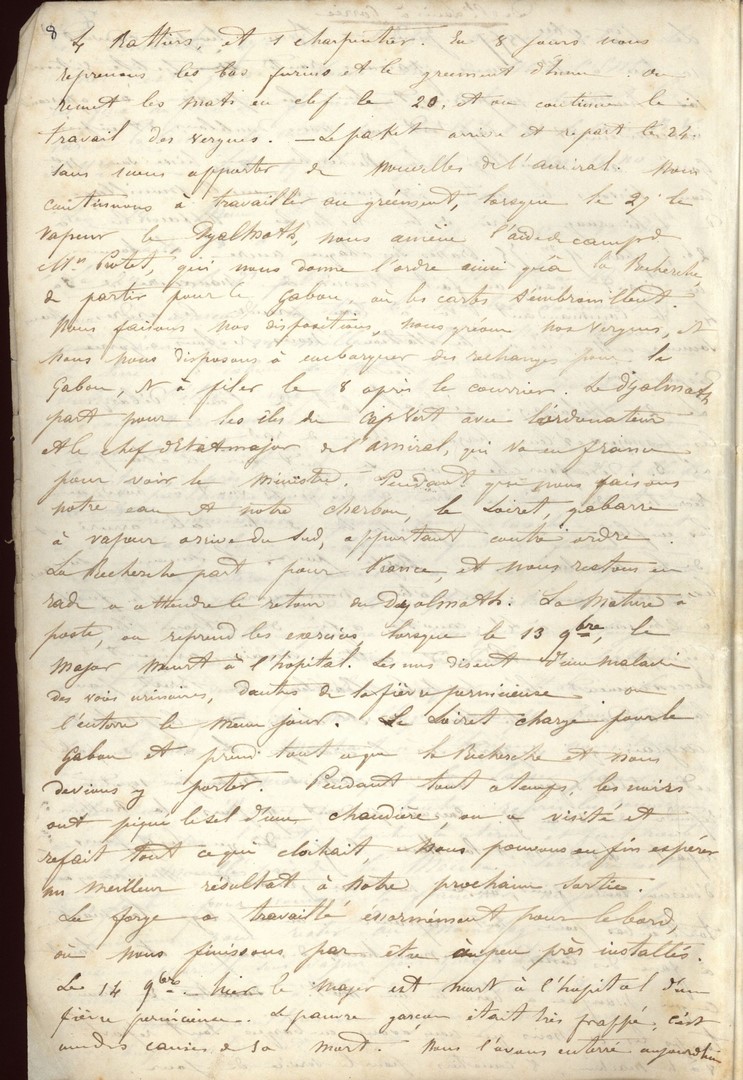 8
4 Rattiers, et 1 charpentier. En 8 jours nous
reprenons les bas furins et le greement d'hune. on
remet les mats en clef le 20. et on continue le
travail des vergues. — Le paket arrive et repart le 24.
sans nous apporter de nouvelles de l'amiral. Nous
continuons à travailler au gréement, lorsque le 29 le
vapeur le Dyalmath, nous amène l'aide de camp de
Mr. Protet, qui nous donne l'ordre ainsi qu'à la Recherche,
de partir pour le Gabon, où les cartes s'embrouillent.
Nous faisons nos dispositions, nous gréons nos vergues, et
nous nous disposons à embarquer des rechanges pour le
Gabon, et à filer le 8 après le courrier. Le Dyalmath
part pour les iles du Cap Vert avec l'ordonateur
et le chef d'Etat major de l'amiral, qui va en france
pour voir le ministre. Pendant que nous faisons
notre eau et notre charbon, le Loiret, gabarre
à vapeur arrive du Sud, apportant contre ordre.
La Recherche part pour France, et nous restons en
rade a attendre le retour du Dyalmath. La mature a
poste, on reprend les exercices, lorsque le 13 9bre, le
Major meurt à l'hopital. Les uns disent d'une maladie
des voies urinaires, d'autres de la fièvre pernicieuse on
l'enterre le même jour. Le Loiret charge pour le
Gabon et prend tout ce que la Recherche et nous
devions y porter. Pendant tout ce temps, les noirs
ont piqué le sel d'une chaudière, on a visité et
refait tout ce qui clochait, Nous pouvons enfin espérer
un meilleur résultat à notre prochaine sortie.
La forge a travaillé énormément pour le bord,
où nous finissons par être à peu près installés.
Le 14 9bre. hier le Major est mort à l'hopital d'une
fièvre pernicieuse. Le pauvre garçon était très frappé, c'est
une des causes de sa mort. Nous l'avons enterré aujourd'hui